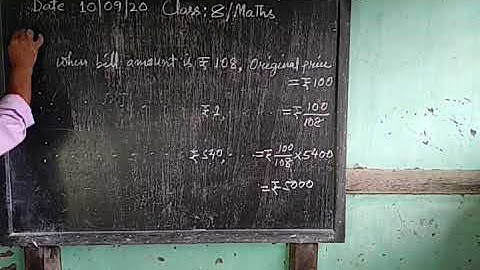 Date 10/09/20 Class: 8/Maths
When bill amount is ₹ 108, Original price
= ₹ 100
₹ 1, = ₹ 100/108
₹ 540, = ₹ 100/108 × 5400
= ₹ 5000